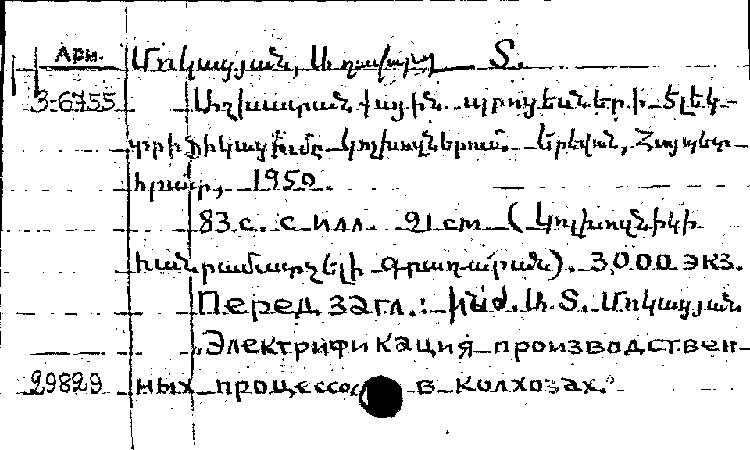 Арм. Մոկացյան, Ա. Տ.
3-6755 Աշխատանքային պրոցեսների էլեկ-
տրիֆիկացումը կոլխոզներում. Երևան, Հայպետ-
հրատ, 1950.
83 с. с илл. 21 cm (Կոլխոզնիկի
հանրամատչելի գրադարան). 3000 экз.
Перед загл.: Ինժ. Ա. Տ. Մոկացյան
„Электрификация производствен-
29829 ных процессов в колхозах.“